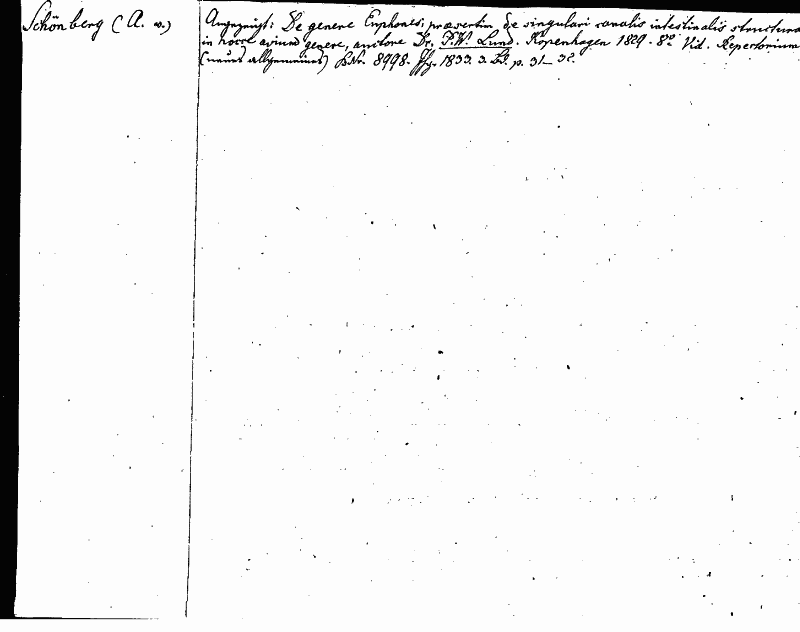 Schönberg (A. v.)
Angezeigt: De genere Euphones, præsertim de singulari canalis intestinalis structura
in hocce avium genere, auctore Dr. P. W. Lund. Kopenhagen 1829. 8º Vid. Repertorium
(neues allgemeines) 8998. 1833. 3. Bd. p. 31–32.